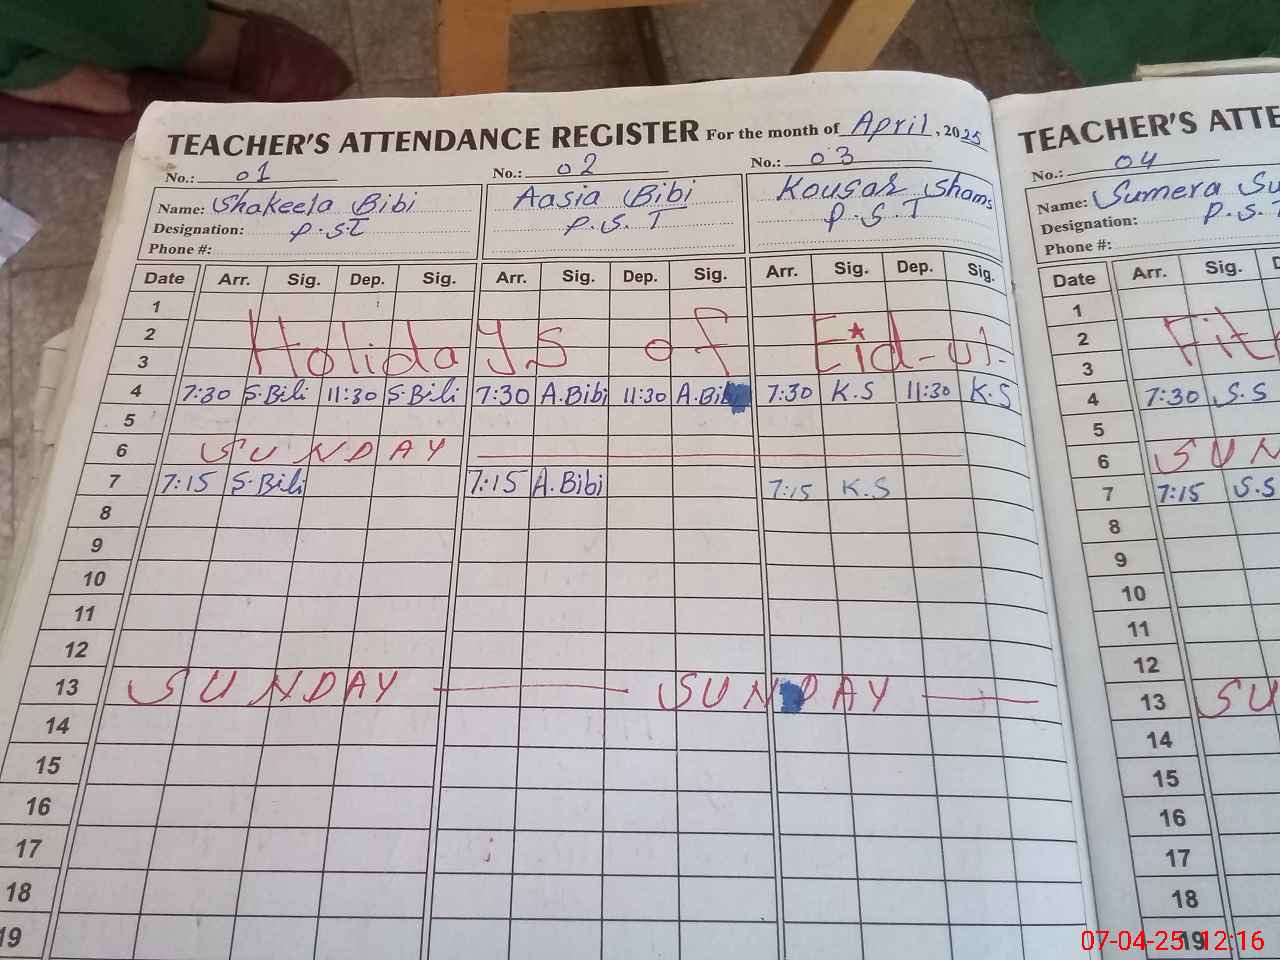 TEACHER'S ATTENDANCE REGISTER For the month of April, 2025
No.: 01 No.: 02 No.: 03
Name: Shakeela Bibi Aasia Bibi Kousar Shams
Designation: P.S.T P.S.T P.S.T
Phone #:
Date Arr. Sig. Dep. Sig. Arr. Sig. Dep. Sig. Arr. Sig. Dep. Sig.
1
2 Holidays of Eid-ul-
3
4 7:30 S.Bibi 11:30 S.Bibi 7:30 A.Bibi 11:30 A.Bibi 7:30 K.S 11:30 K.S
5
6 SUNDAY
7 7:15 S.Bibi 7:15 A.Bibi 7:15 K.S
8
9
10
11
12
13 SUNDAY SUNDAY
14
15
16
17
18
19
TEACHER'S ATTE
No.: 04
Name: Sumera Su
Designation: P.S.T
Phone #:
Date Arr. Sig. D
1
2 Fit
3
4 7:30 S.S
5
6 SUN
7 7:15 S.S
8
9
10
11
12
13 SU
14
15
16
17
18
19
07-04-25 12:16